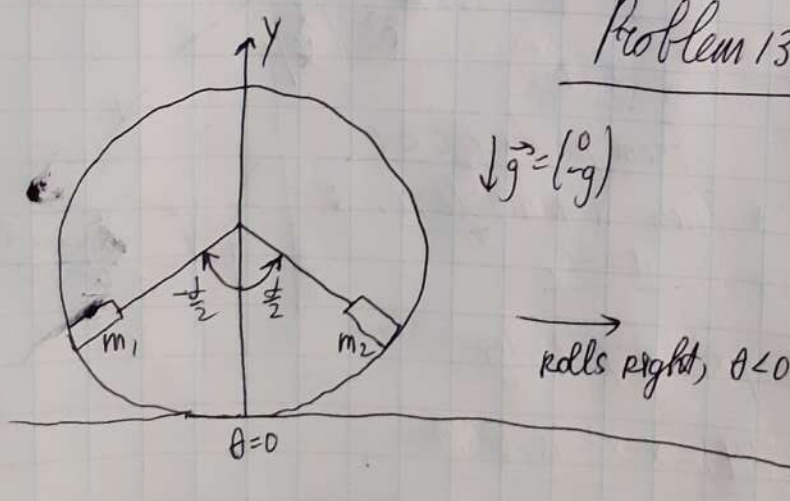 Problem 13
y
↓g⃗=(0 -g)
-α/2 α/2
m₁ m₂
Rolls right, θ<0
θ=0